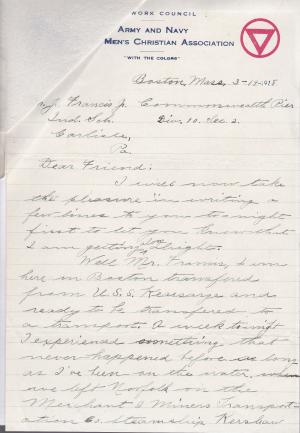 WORK COUNCIL
ARMY AND NAVY
MEN'S CHRISTIAN ASSOCIATION
"WITH THE COLORS"
Boston, Mass. 3-19-1918
Mr. Francis Jr. Commonwealth Pier
Ind. Sch. Div. 10. Sec. 2.
Carlisle,
Pa
Dear Friend:
I will now take
the pleasure in writing a
few lines to you tonight
first to let you know that
I am getting along alright.
Well Mr. Francis, I am
here in Boston transfered
from U.S.S. Kearsarge and
ready to be transfered to
a transport. A week tonight
I experienced something that
never happened before as long
as I've been on the water, when
we left Norfolk on the
Merchant & Miners Transport-
ation Co. Steamship Kershaw